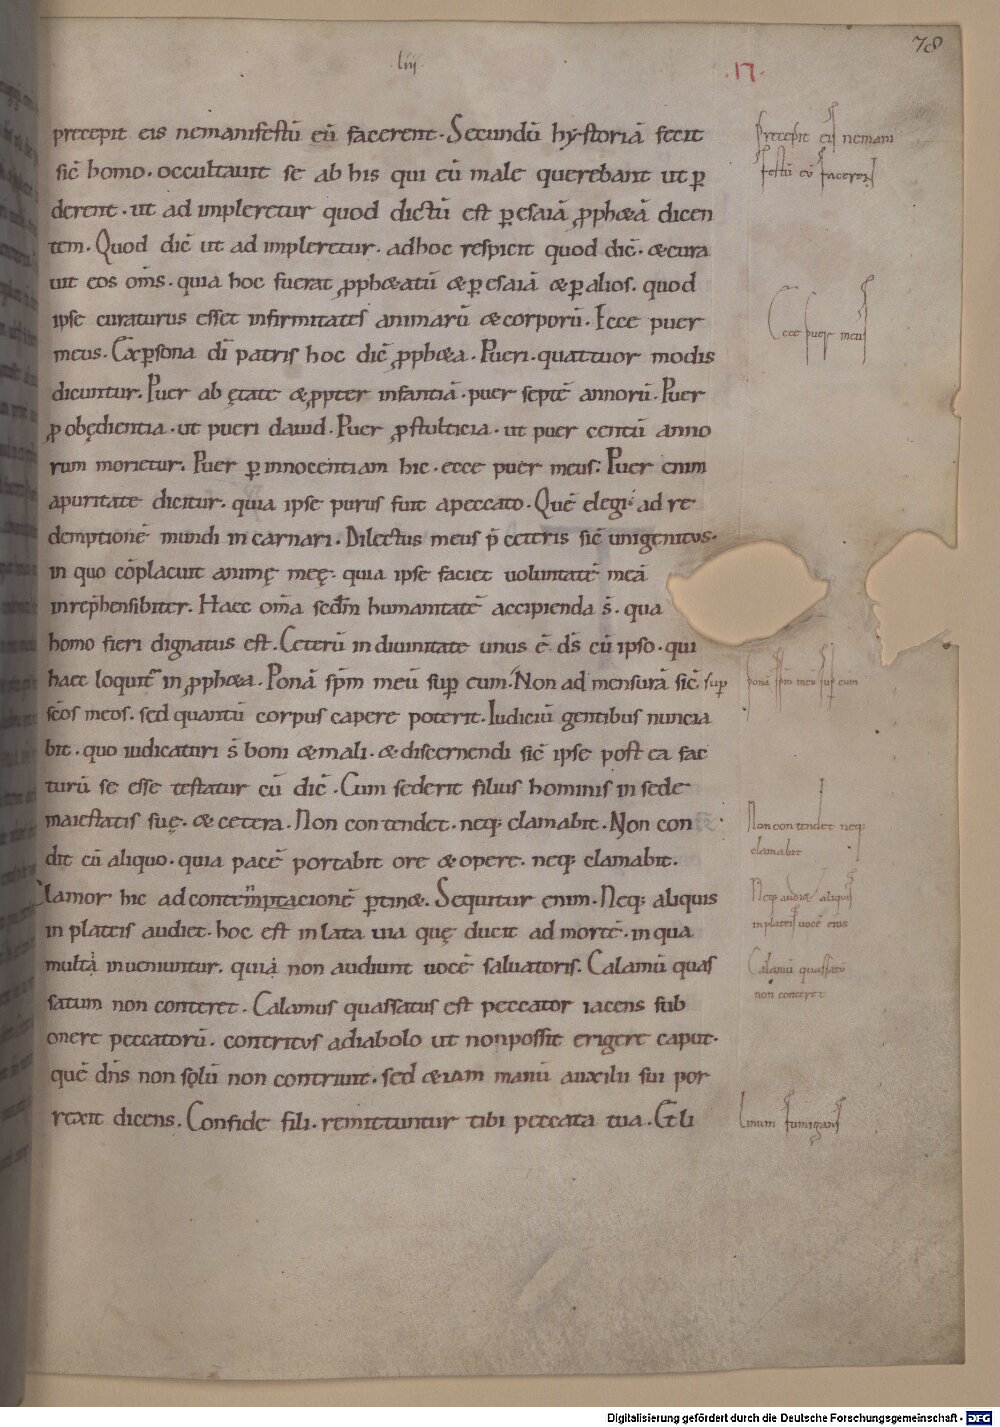 78
.liii.
.17.
precepit eis nemanifestū eū facerent. Secundū hystoriā fecit
sic̄ homo. occultauit se ab his qui eū male querebant ut ꝑ
derent. ut ad impleretur quod dictū est ꝑ esaiā ꝓphetā dicen
tem. Quod dic̄ ut ad impleretur. adhoc respicit quod dic̄. & cura
uit eos om̄s. quia hoc fuerat ꝓph&atū & ꝑ esaiā & ꝑ alios. quod
ipse curaturus esset infirmitates animarū & corporū. Ecce puer
meus. Exꝑsona dī patris hoc dic̄ ꝓph&a. Pueri. quattuor modis
dicuntur. Puer ab ętate & ꝓpter infantiā. puer septē annorū. Puer
ꝓ obędientia. ut pueri dauid. Puer ꝓ stulticia. ut puer centū anno
rum morietur. Puer ꝑ innocentiam hic. ecce puer meus. Puer enim
apuritate dicitur. quia ipse purus fuit apeccato. Quē elegi. ad re
demptionē mundi in carnari. Dilectus meus p̄ ceteris sic̄ unigenitus.
in quo cōplacuit animę meę. quia ipse faciet uoluntatē meā
inrep̄hensibiter. Haec om̄a sedm̄ humanitatē accipienda s̄. quia
homo fieri dignatus est. Ceterū in diuinitate unus ē d̄s cū ipso. qui
haec loquit᷑ in ꝓph&a. Ponā sp̄m meū suꝑ eum. Non ad mensurā sic̄ suꝑ
sc̄os meos. sed quantū corpus capere poterit. Iudiciū gentibus nuncia
bit. quo iudicaturi s̄ boni & mali. & discernendi sic̄ ipse post ea fac
turū se esse testatur cū dic̄. Cum sederit filius hominis in sede
maiestatis suę. & cetera. Non contendet. neq; clamabit. Non con
dit cū aliquo. quia pacē portabit ore & opere. neq; clamabit.
Clamor hic ad contemptacionē ꝑtin&. Sequitur enim. Neq; aliquis
in plateis audiet. hoc est in lata uia quę ducit ad mortē. in qua
multi inueniuntur. qui non audiunt uocē saluatoris. Calamū quas
satum non conteret. Calamus quassatus est peccator iacens sub
onere peccatorū. contritus adiabolo ut nonpossit erigere caput.
quē dn̄s non solū non contriuit. sed & iam manū auxilii sui por
rexit dicens. Confide fili. remittuntur tibi peccata tua. Et li
precepit eis nemani
festū eū facerent
Ecce puer meus
ponā sp̄m meū suꝑ eum
Non contendet neq;
clamabit
Neq; audi& aliquis
inplateis uocē eius
Calamū quassatū
non conteret
Linum fumigans
Digitalisierung gefördert durch die Deutsche Forschungsgemeinschaft - DFG